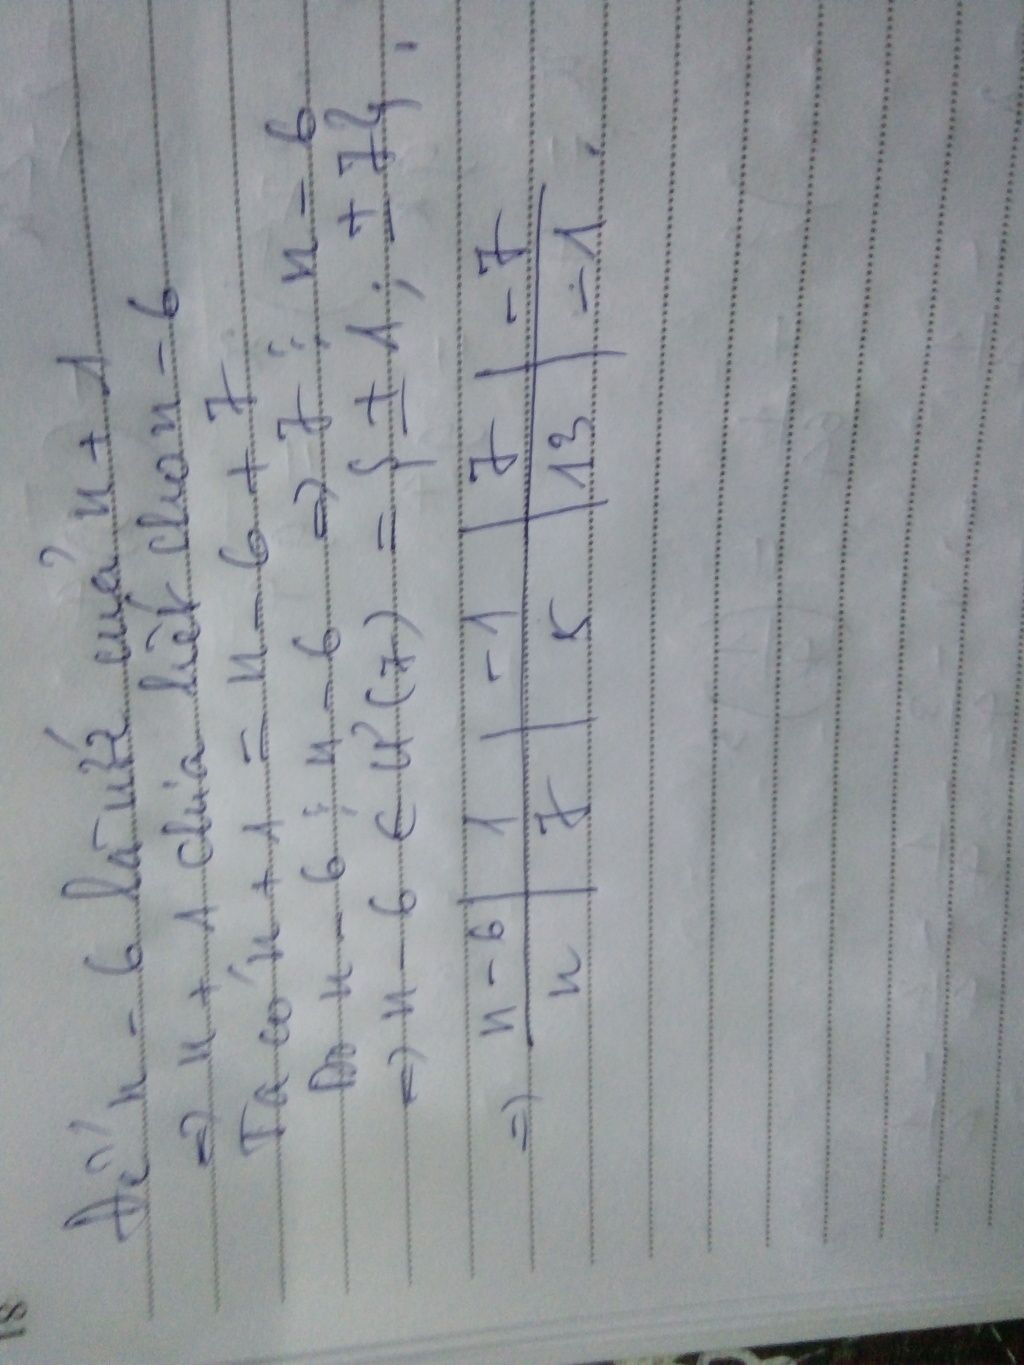 Để n - 6 là ước của n + 1
=> n + 1 chia hết cho n - 6
Ta có n + 1 = n - 6 + 7
Do n - 6 ⋮ n - 6 => 7 ⋮ n - 6
=> n - 6 ∈ Ư(7) = {± 1; ± 7}.
=> n - 6 | 1 | -1 | 7 | -7
n | 7 | 5 | 13 | -1.
18